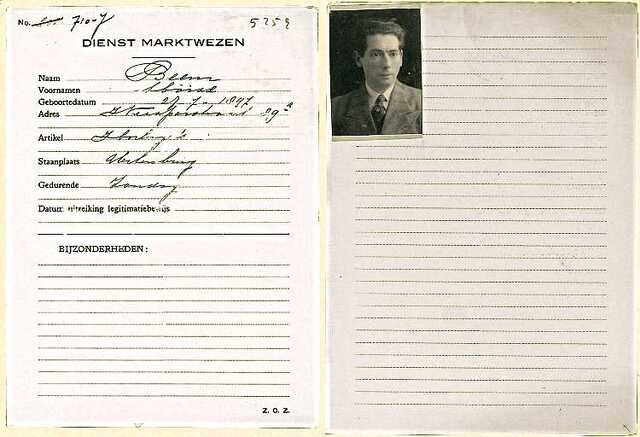 No. 710-7 5259
DIENST MARKTWEZEN
Naam Beem
Voornamen
Geboortedatum 27 7 1897
Adres 89
Artikel Horloge's
Staanplaats Uilenburg
Gedurende Zondag
Datum uitreiking legitimatiebewijs
BIJZONDERHEDEN:
Z. O. Z.